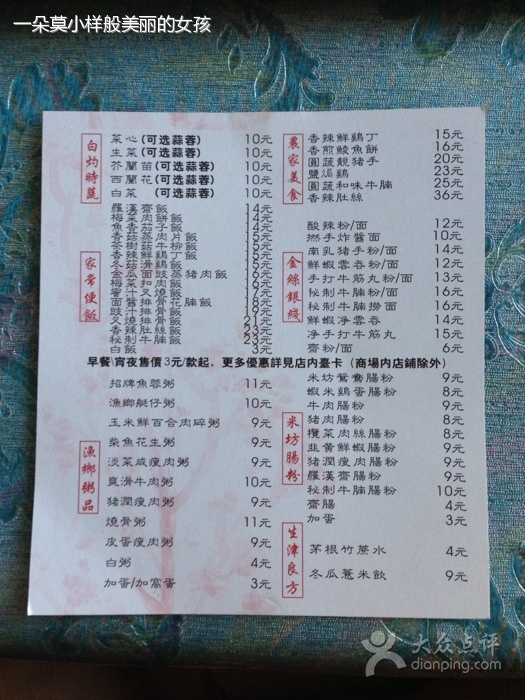 一朵莫小样般美丽的女孩
白灼時蔬
菜心(可选蒜蓉) 10元
生菜(可选蒜蓉) 10元
芥蘭苗(可选蒜蓉) 10元
西蘭花(可选蒜蓉) 10元
白菜(可选蒜蓉) 10元
家常便飯
羅漢齋飯 14元
梅菜肉餅飯 14元
魚香茄子飯 14元
香菇蒸肉片飯 15元
茶樹菇牛柳飯 15元
香辣鮮鷄丁飯 15元
冬菇滑鷄飯 15元
金瓜面豉蒸豬肉飯 16元
梅菜扣肉飯
蜜汁叉燒飯
面醬排骨花腩飯 18元
豉汁排骨飯
叉燒排骨飯 21元
香辣肚絲飯 23元
秘制牛腩飯 22元
白飯 3元
農家美食
香辣鮮鷄丁 15元
香煎鯪魚餅 16元
圓蔬靚猪手 20元
鹽焗鷄 23元
圓蔬和味牛腩 25元
香辣肚絲 36元
金絲銀綫
酸辣粉/面 12元
撈手炸醬面 10元
南乳猪手粉/面 14元
鮮蝦雲吞粉/面 12元
净手打牛筋丸粉/面 13元
秘制牛腩粉/面 14元
秘制牛腩撈面 16元
鮮蝦净雲吞 14元
净手打牛筋丸 15元
齋粉/面 6元
早餐\宵夜售價3元/款起，更多優惠詳見店内臺卡（商場内店鋪除外）
漁鄉粥品
招牌魚蓉粥 11元
漁鄉艇仔粥 10元
玉米鮮百合肉碎粥 9元
柴魚花生粥 9元
淡菜咸瘦肉粥 9元
爽滑牛肉粥 10元
猪潤瘦肉粥 9元
燒骨粥 11元
皮蛋瘦肉粥 9元
白粥 4元
加蛋/加窩蛋 3元
米坊腸粉
米坊鴛鴦腸粉 9元
蝦米鷄蛋腸粉 8元
牛肉腸粉 9元
猪肉腸粉 8元
欖菜肉絲腸粉 8元
韭黄鮮蝦腸粉 9元
猪潤瘦肉腸粉 9元
羅漢齋腸粉 9元
秘制牛腩腸粉 10元
齋腸 4元
加蛋 3元
生津良方
茅根竹蔗水 4元
冬瓜薏米飲 9元
大众点评
dianping.com